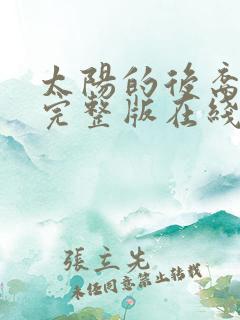 太陽的後裔
完整版在綫
張立先
未經同意禁止轉載